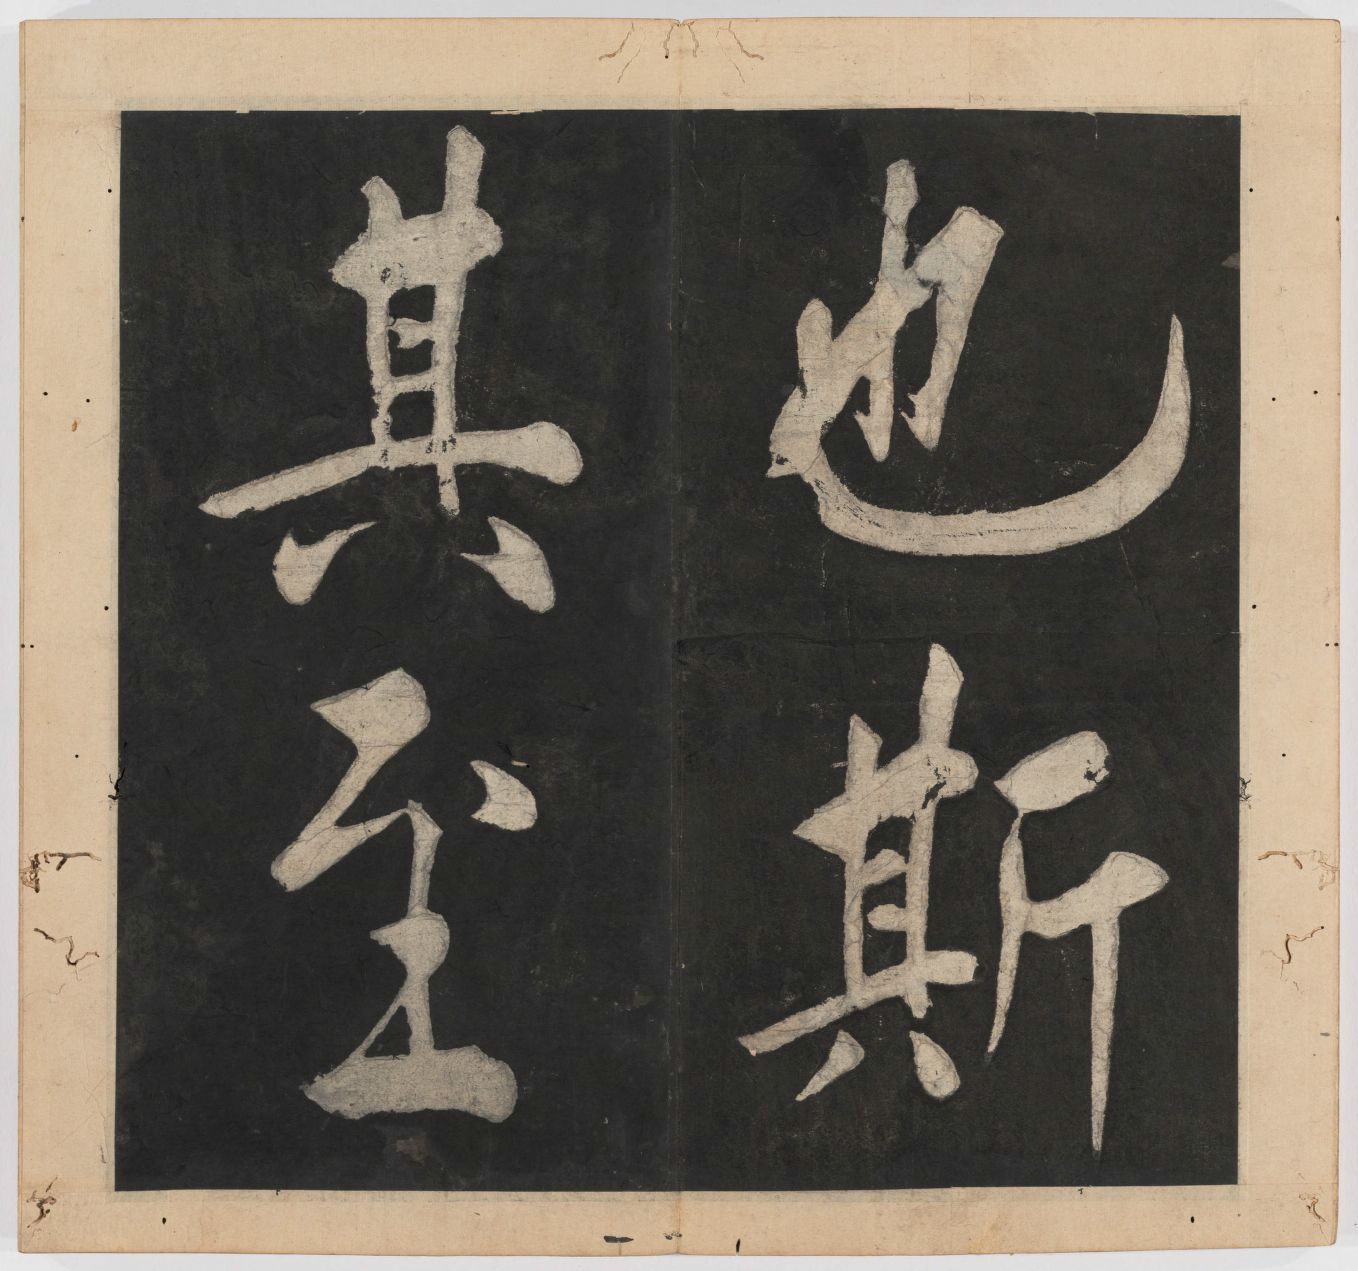 也斯
其至